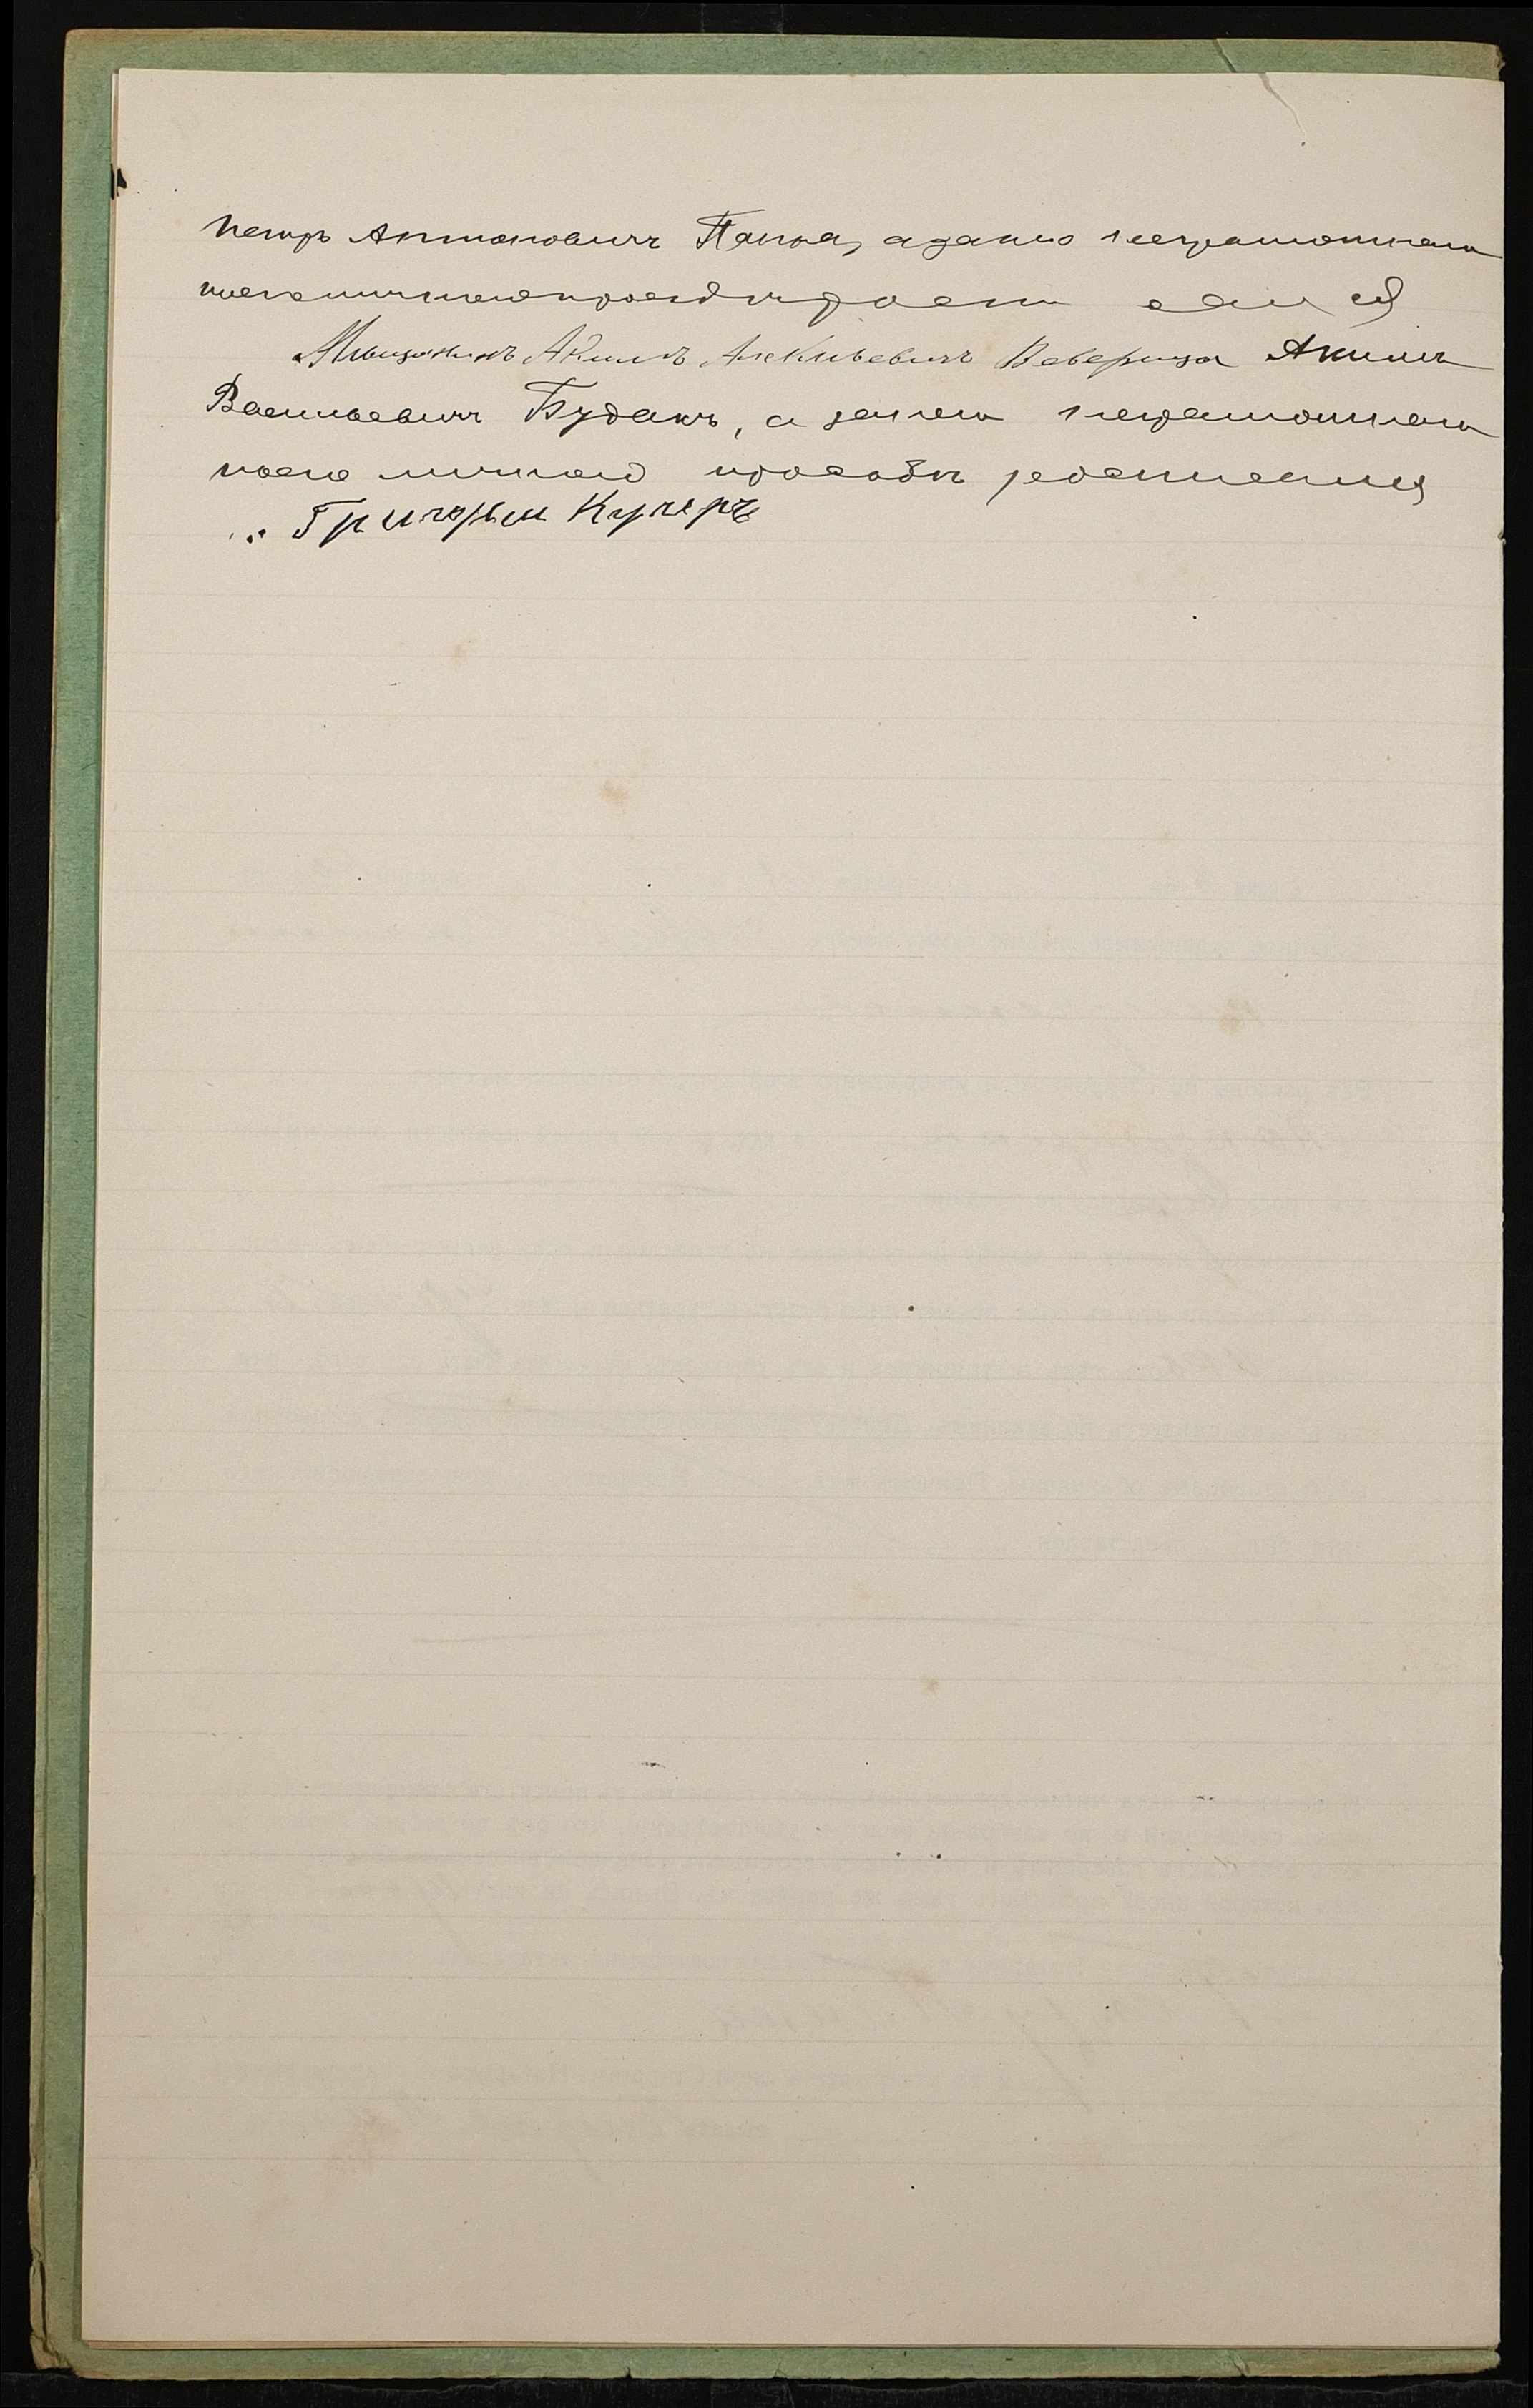 Петръ Антоновичъ Папка, а за него неграмотнаго
по его личной просьбѣ росписался
Мѣщанинъ Акимъ Алексѣевичъ Веверица Акимъ
Васильевичъ Будакъ, а за него неграмотнаго
по его личной просьбѣ росписался
Григорый Кучеръ